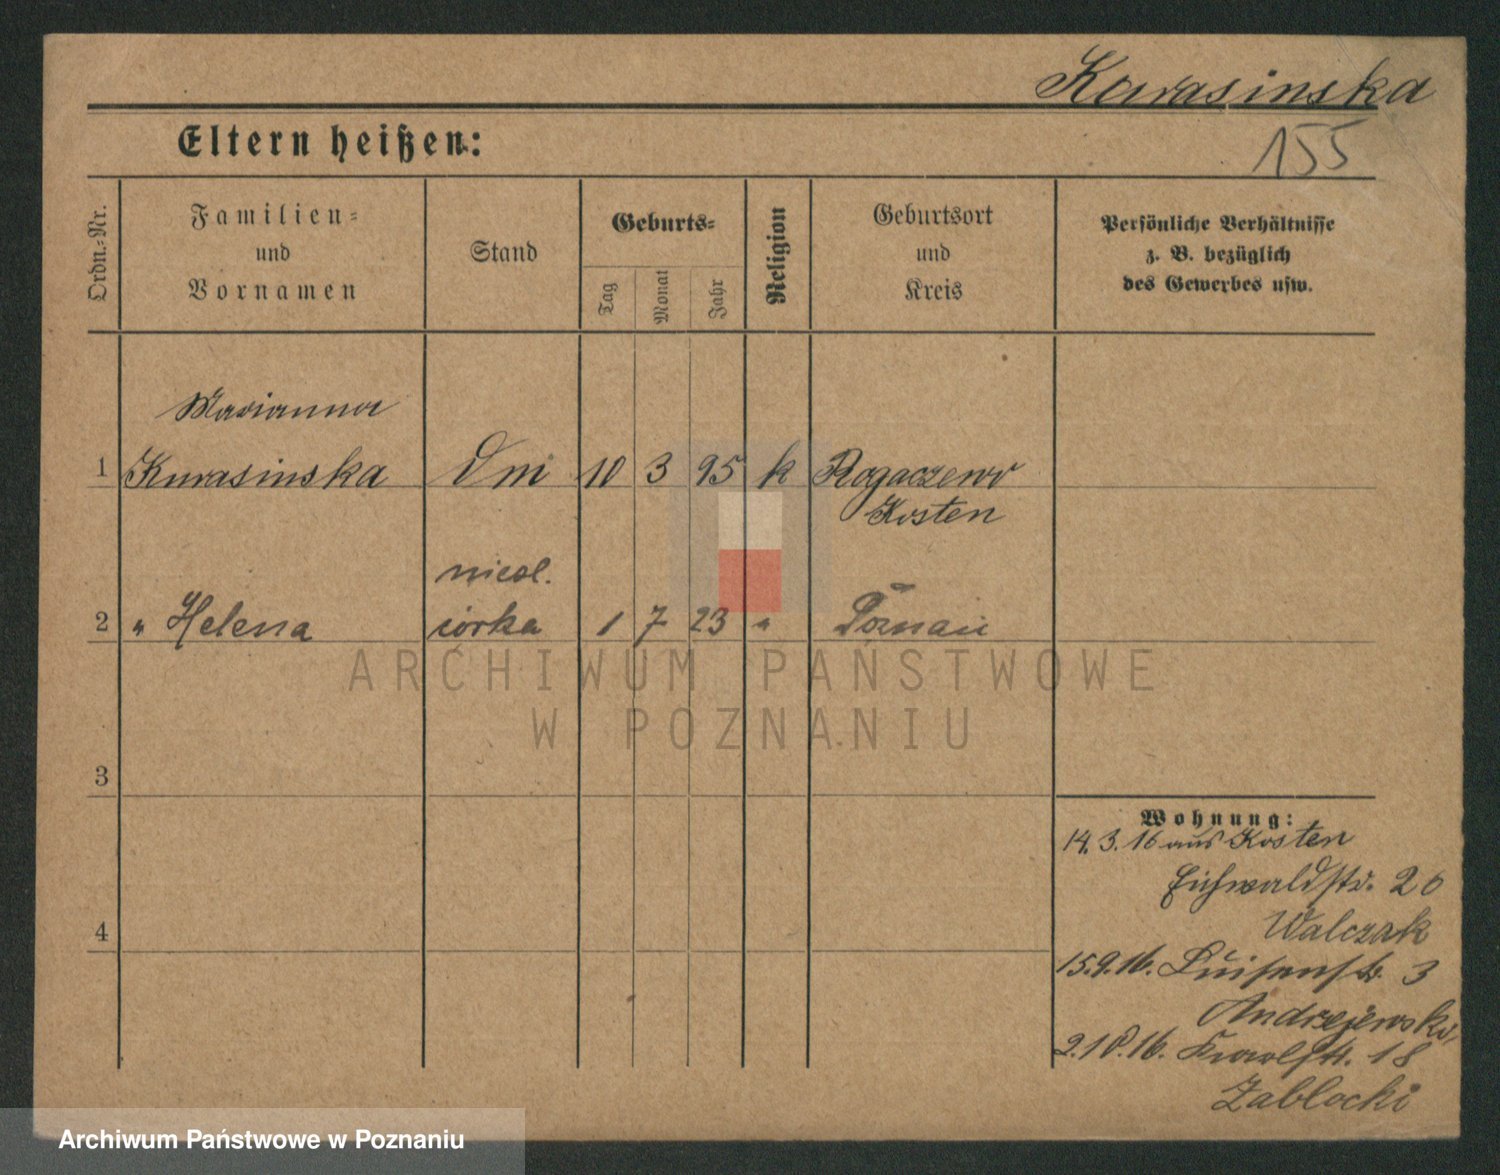 Kurasinska
155
Eltern heißen:
Ordn.-Nr.
Familien-
und
Vornamen
Stand
Geburts-
Tag
Monat
Jahr
Religion
Geburtsort
und
Kreis
Persönliche Verhältnisse
z. B. bezüglich
des Gewerbes usw.
Marianna
1 Kurasinska Dm 10 3 95 k Rogaczewo
Kosten
niesl.
2 " Helena córka 1 7 23 " Poznań
ARCHIWUM PAŃSTWOWE
W POZNANIU
3
Wohnung:
14.3.16 aus Kosten
Eichwaldstr. 26
4
Walczak
15.9.16. Luisenstr. 3
Andrzejewski,
2.10.16. 18
Zablocki
Archiwum Państwowe w Poznaniu